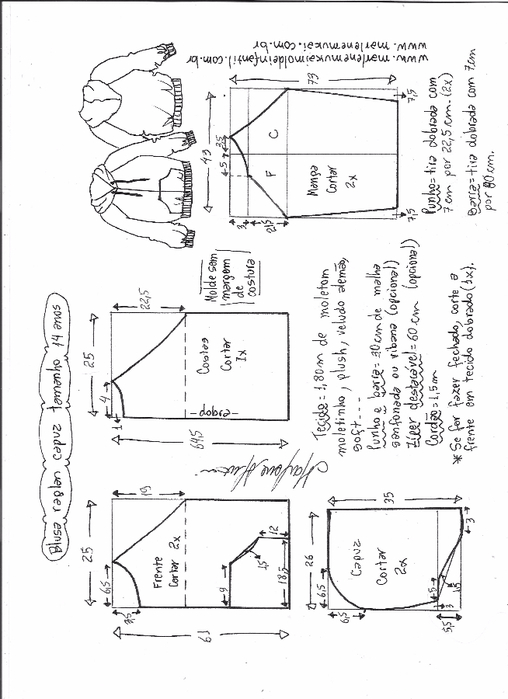 Blusa raglan capuz tamanho 14 anos
25
6,5
Frente
Cortar 2x
9
15
12
18,5
25
4
1
22,5
Costas
Cortar
1x
dobra
64,5
Molde sem
margem
de
costura
5
3,5
3
F
C
Manga
Cortar
2x
7,5
7,5
www.marlenemukai.com.br
www.marlenemukaimoldeinfantil.com.br
26
6,5
6,5
35
Capuz
Cortar
2x
5
3
5,5
3
Tecido = 1,80m de moletom
moletinho, plush, veludo alemão,
soft....
Punho e barra = 30cm de malha
sanfonada ou ribana (opcional)
Zíper destacável = 60 cm (opcional)
Cordão = 1,5m
* Se for fazer fechado, corte a
frente em tecido dobrado (1x).
Punho = tira dobrada com
7cm por 22,5cm. (2x)
Barra = tira dobrada com 7cm
por 80cm.